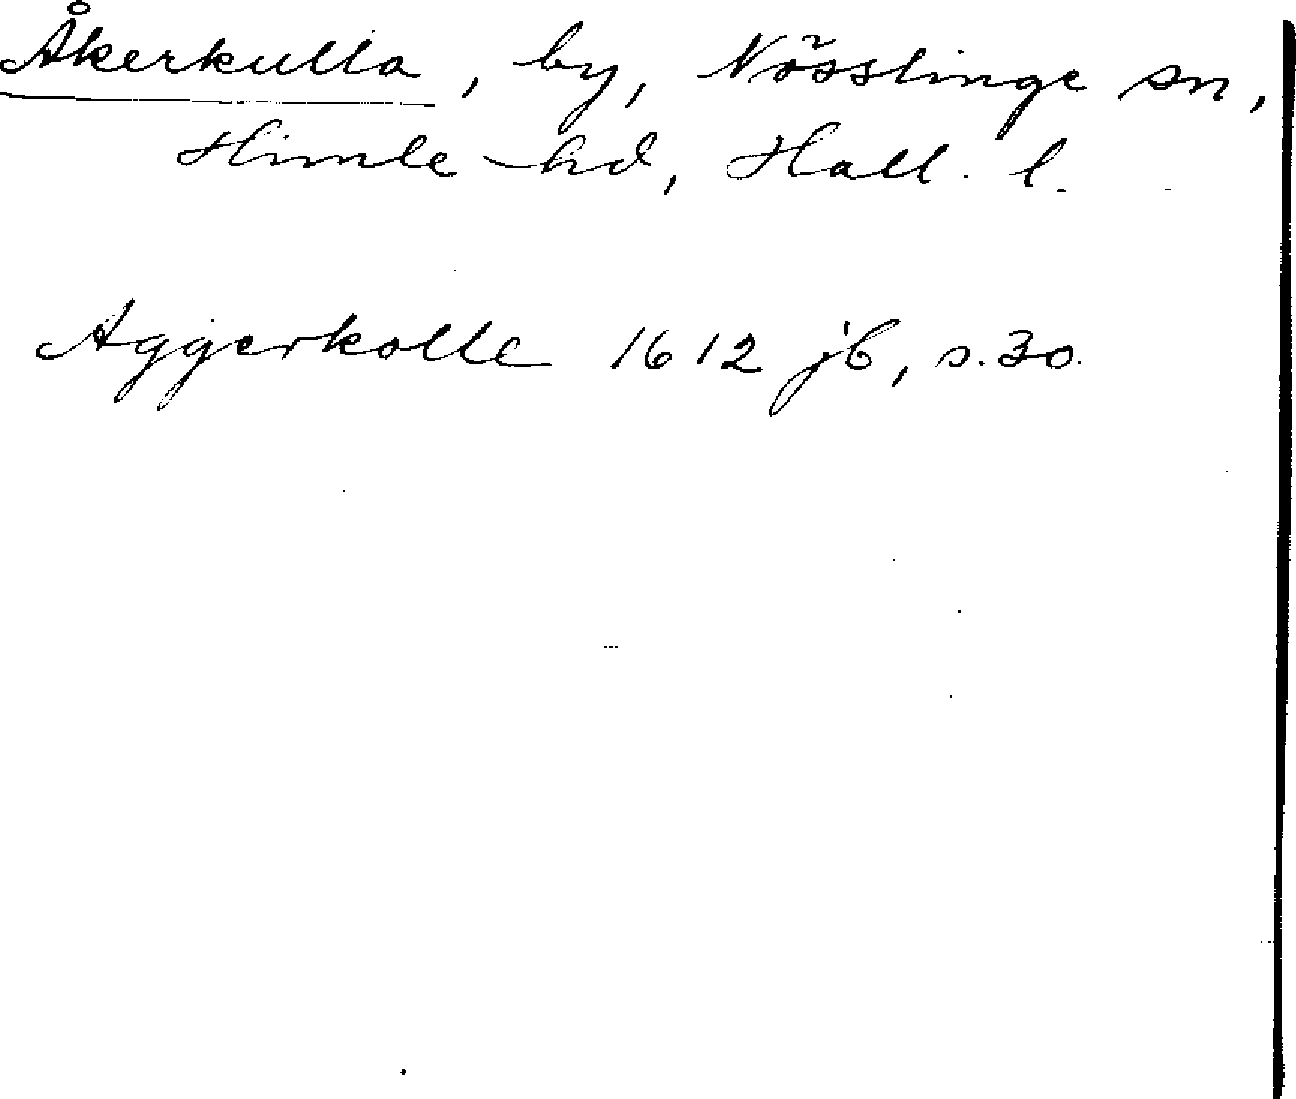 Åkerkulla, by, Nösslinge sn,
Himle hd, Hall. l.
Aggerkolle 1612 jb, s. 30.